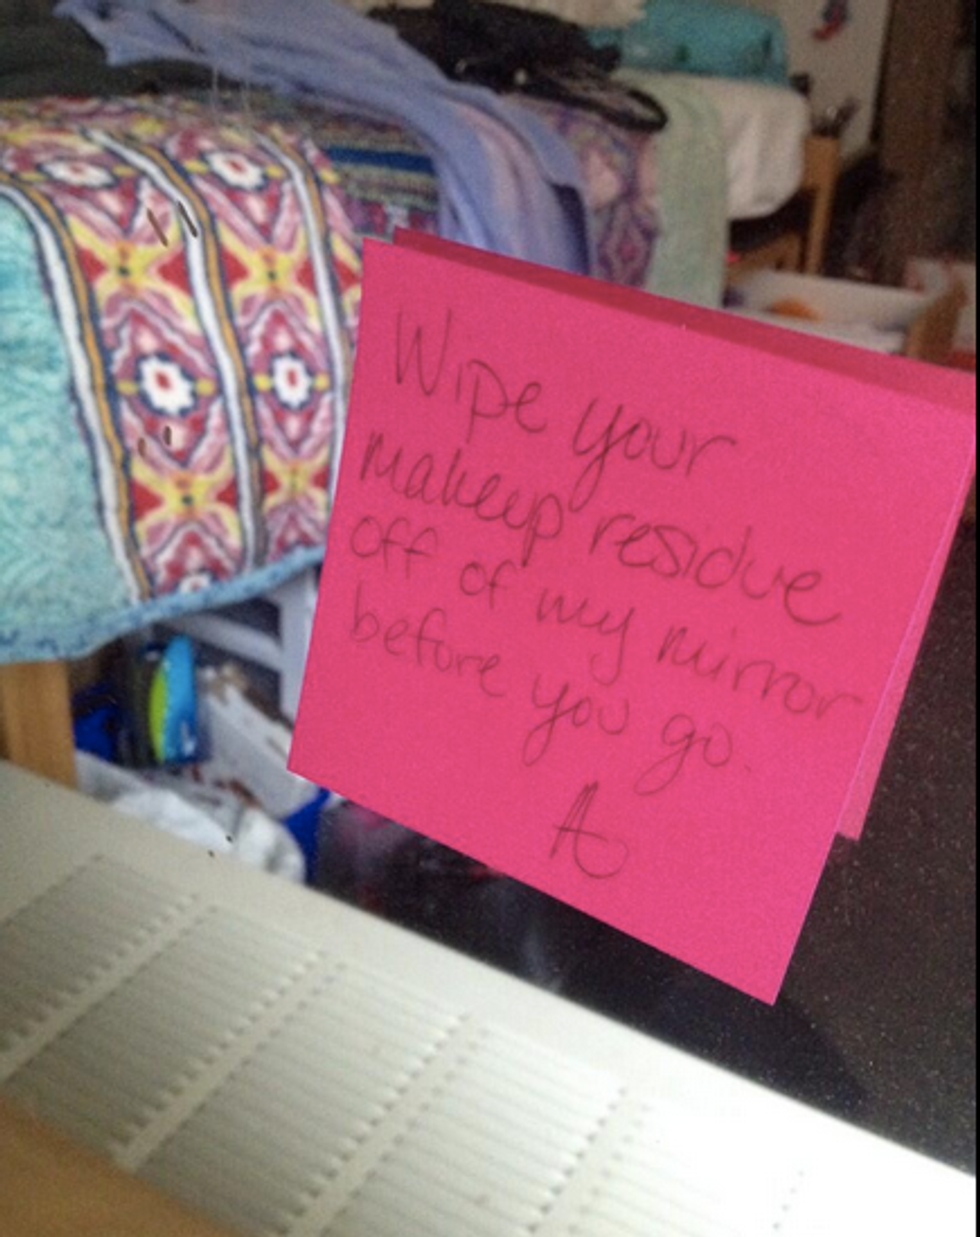 Wipe your
makeup residue
off of my mirror
before you go.
A